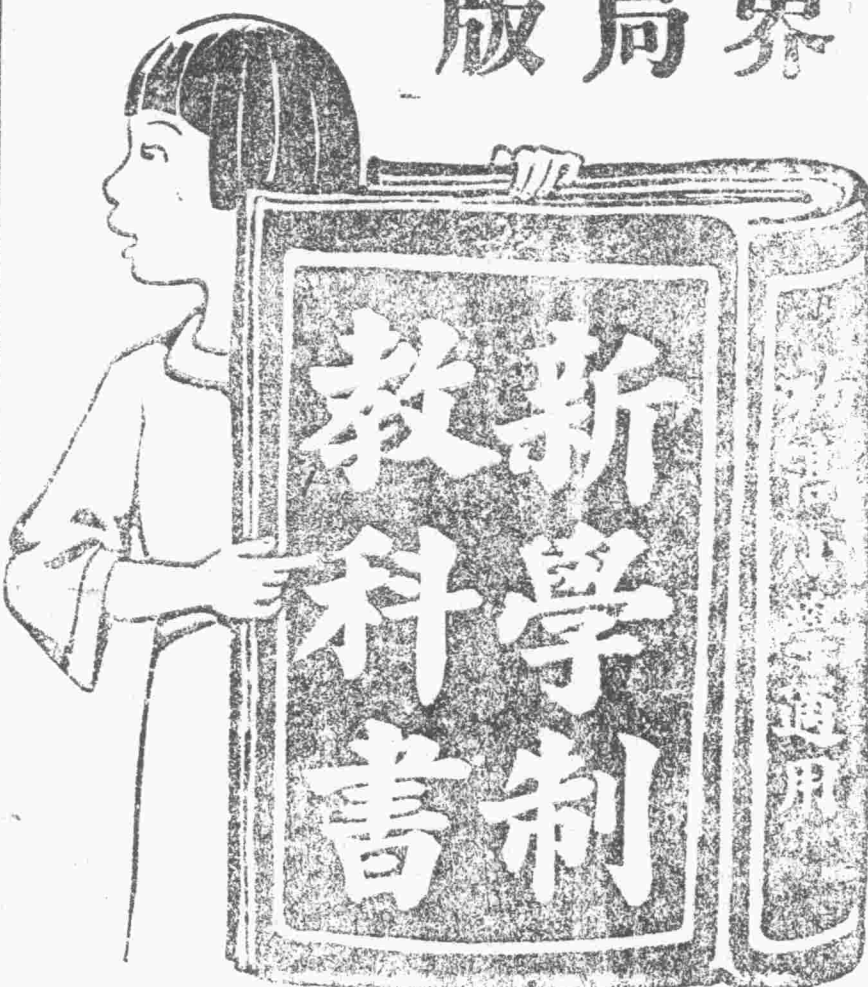 界局版
新學制
教科書
初高小學通用